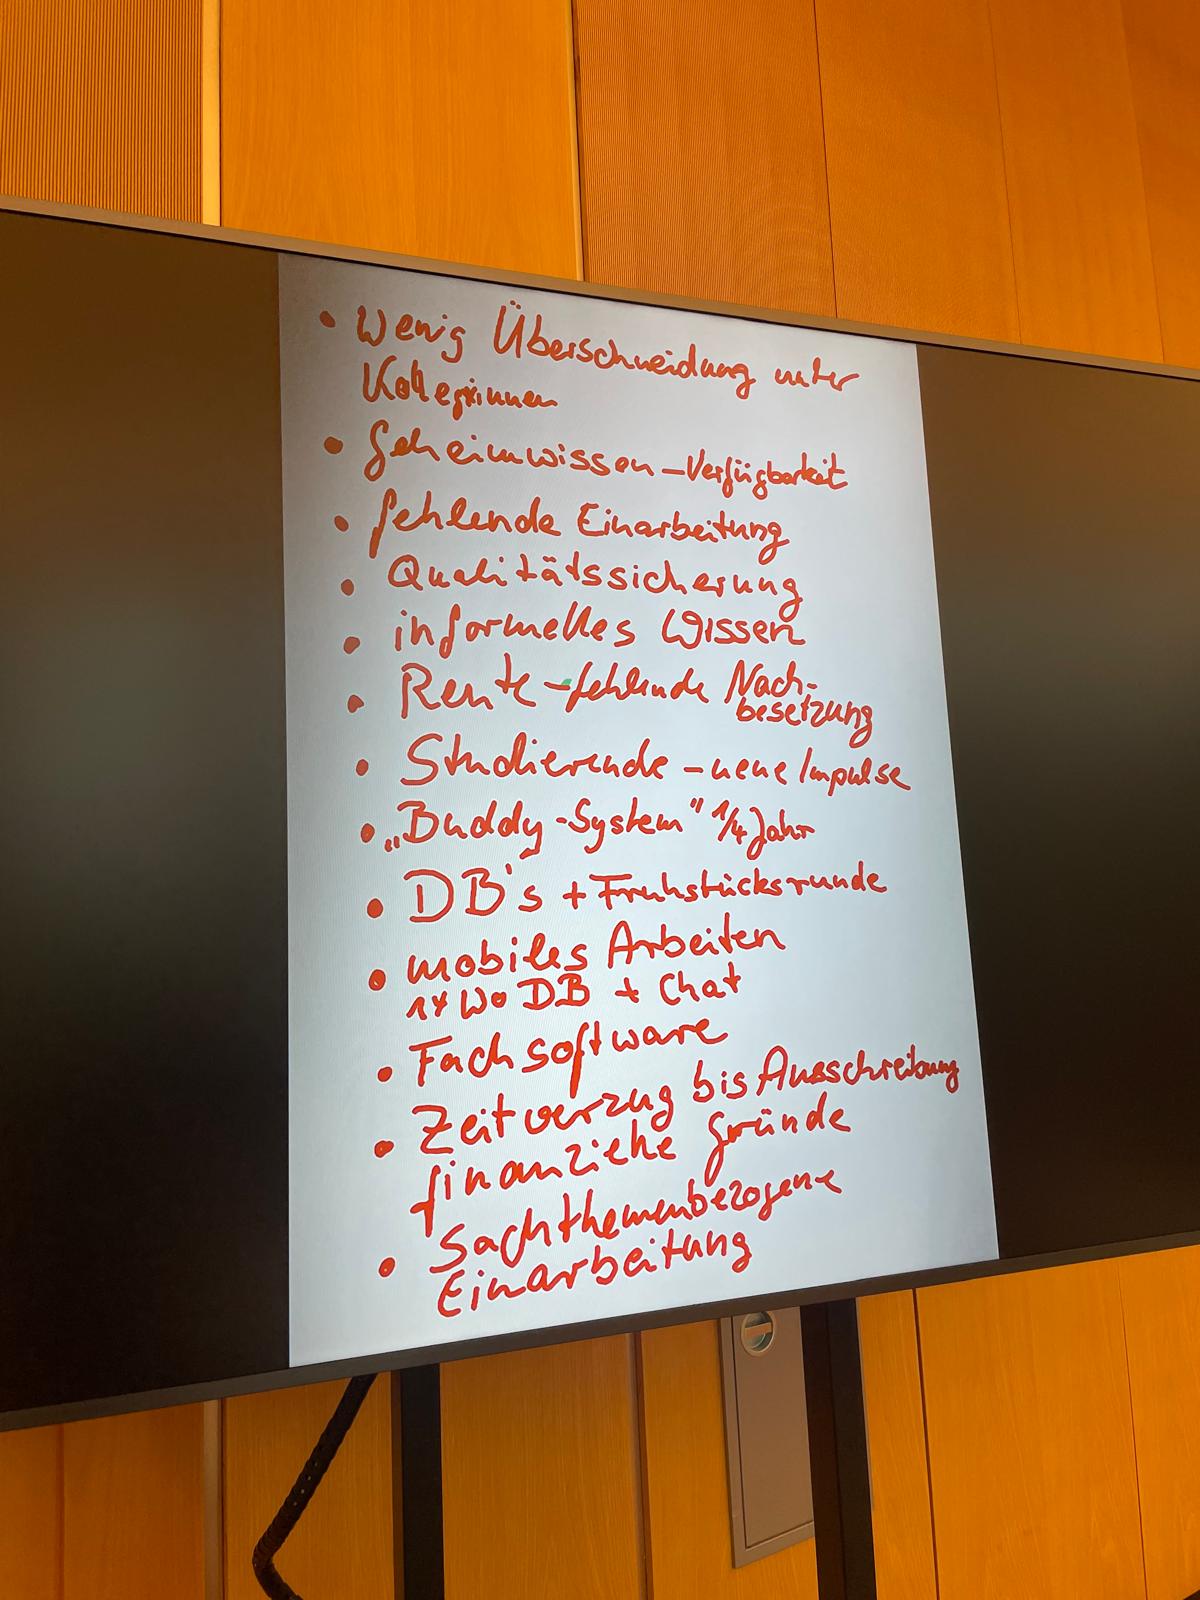 • Wenig Überschneidung unter
Kolleginnen
• Geheimwissen - Verfügbarkeit
• fehlende Einarbeitung
• Qualitätssicherung
• informelles Wissen
• Rente - fehlende Nach-
besetzung
• Studierende - neue Impulse
• „Buddy-System" 1/4 Jahr
• DB's + Fruhstücksrunde
• mobiles Arbeiten
1x Wo DB + Chat
• Fachsoftware
• Zeitverzug bis Ausschreibung
finanzielle Gründe
• Sachthemenbezogene
Einarbeitung